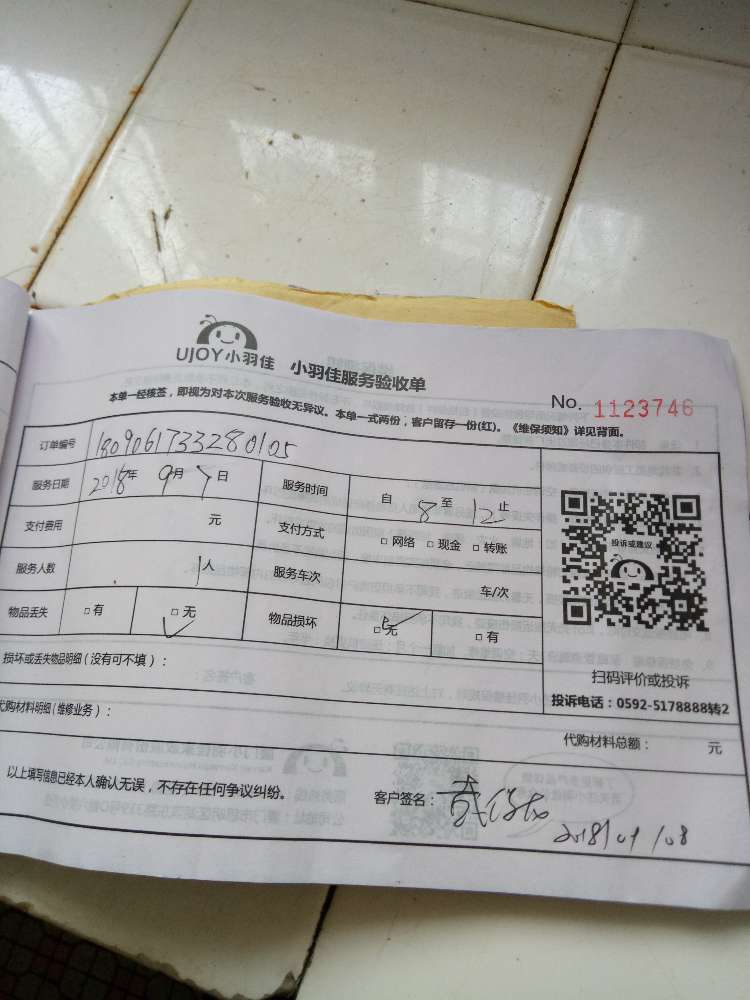 UJOY小羽佳 小羽佳服务验收单
No. 1123746
本单一经核签，即视为对本次服务验收无异议。本单一式两份，客户留存一份(红)。《维保须知》详见背面。
订单编号 1809061733280105
服务日期 2018年 9月 日 服务时间 自 8 至 12 止
支付费用 元 支付方式 □ 网络 □ 现金 □ 转账
服务人数 1人 服务车次 车/次
物品丢失 □ 有 □ 无 物品损坏 □ 无 □ 有
投诉或建议
扫码评价或投诉
投诉电话：0592-5178888转2
损坏或丢失物品明细（没有可不填）：
代购材料明细（维修业务）：
代购材料总额： 元
以上填写信息已经本人确认无误，不存在任何争议纠纷。
客户签名：